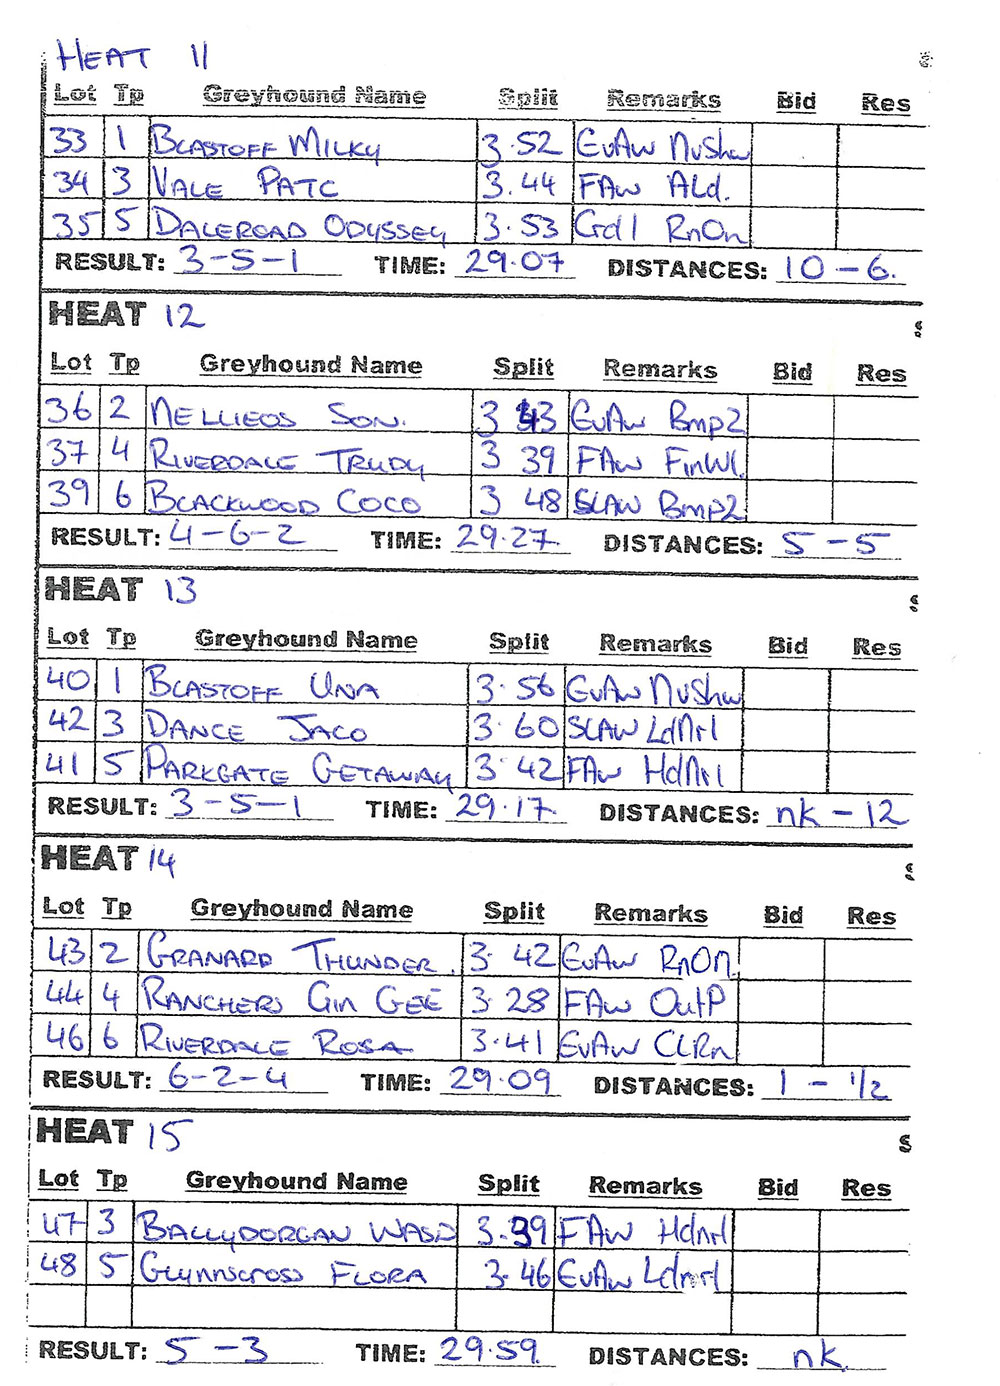 HEAT 11
Lot Tp Greyhound Name Split Remarks Bid Res
33 1 BLASTOFF MILKY 3.52 EvAw NvShw
34 3 VALE PATC 3.44 FAw ALd.
35 5 DALEROAD ODYSSEY 3.53 Crd1 RnOn
RESULT: 3-5-1 TIME: 29.07 DISTANCES: 10-6.
HEAT 12
Lot Tp Greyhound Name Split Remarks Bid Res
36 2 NELLIEOS SON. 3 43 EvAw Bmp2
37 4 RIVERDALE TRUDY 3 39 FAw FinWl.
39 6 BLACKWOOD COCO 3 48 SLAW Bmp2
RESULT: 4-6-2 TIME: 29.27 DISTANCES: 5-5
HEAT 13
Lot Tp Greyhound Name Split Remarks Bid Res
40 1 BLASTOFF UNA 3.56 EvAw NvShw
42 3 DANCE JACO 3.60 SLAW LdNrl
41 5 PARKGATE GETAWAY 3.42 FAw HdNrl
RESULT: 3-5-1 TIME: 29.17. DISTANCES: nk - 12
HEAT 14
Lot Tp Greyhound Name Split Remarks Bid Res
43 2 GRANARD THUNDER. 3. 42 EvAw RnOn.
44 4 RANCHERS Gin GEE 3.28 FAw OutP
46 6 RIVERDALE ROSA 3.41 EvAw CLRn
RESULT: 6-2-4 TIME: 29.09 DISTANCES: 1 - 1/2
HEAT 15
Lot Tp Greyhound Name Split Remarks Bid Res
47 3 BALLYDORGAN WASP 3.39 FAw Hdnrl
48 5 Glynnscross FLORA 3.46 EvAw Ldnrl
RESULT: 5-3 TIME: 29.59. DISTANCES: nk.